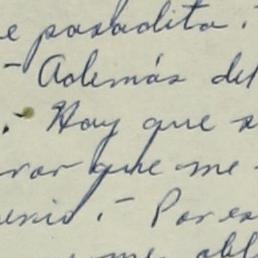 e posadita.
- Además del
.- Hay que s
rar que me
enio.- Por es
me obl